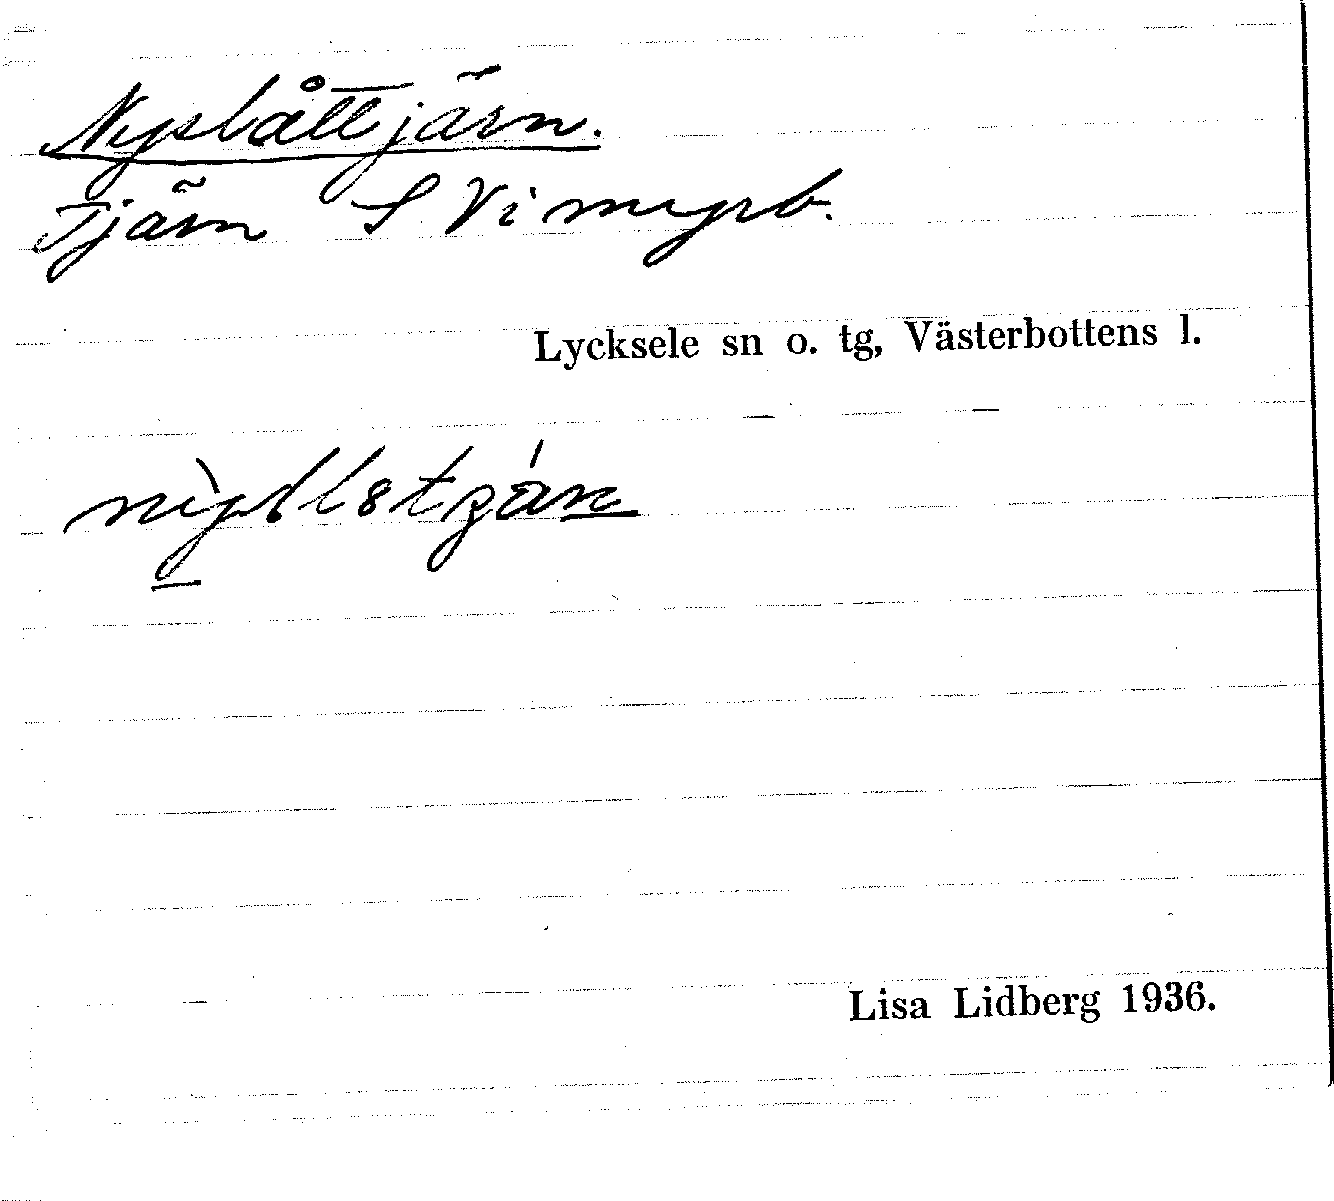 Nyslåttjärn.
Tjärn S Vimyrb.
Lycksele sn o. tg, Västerbottens l.
Lisa Lidberg 1936.